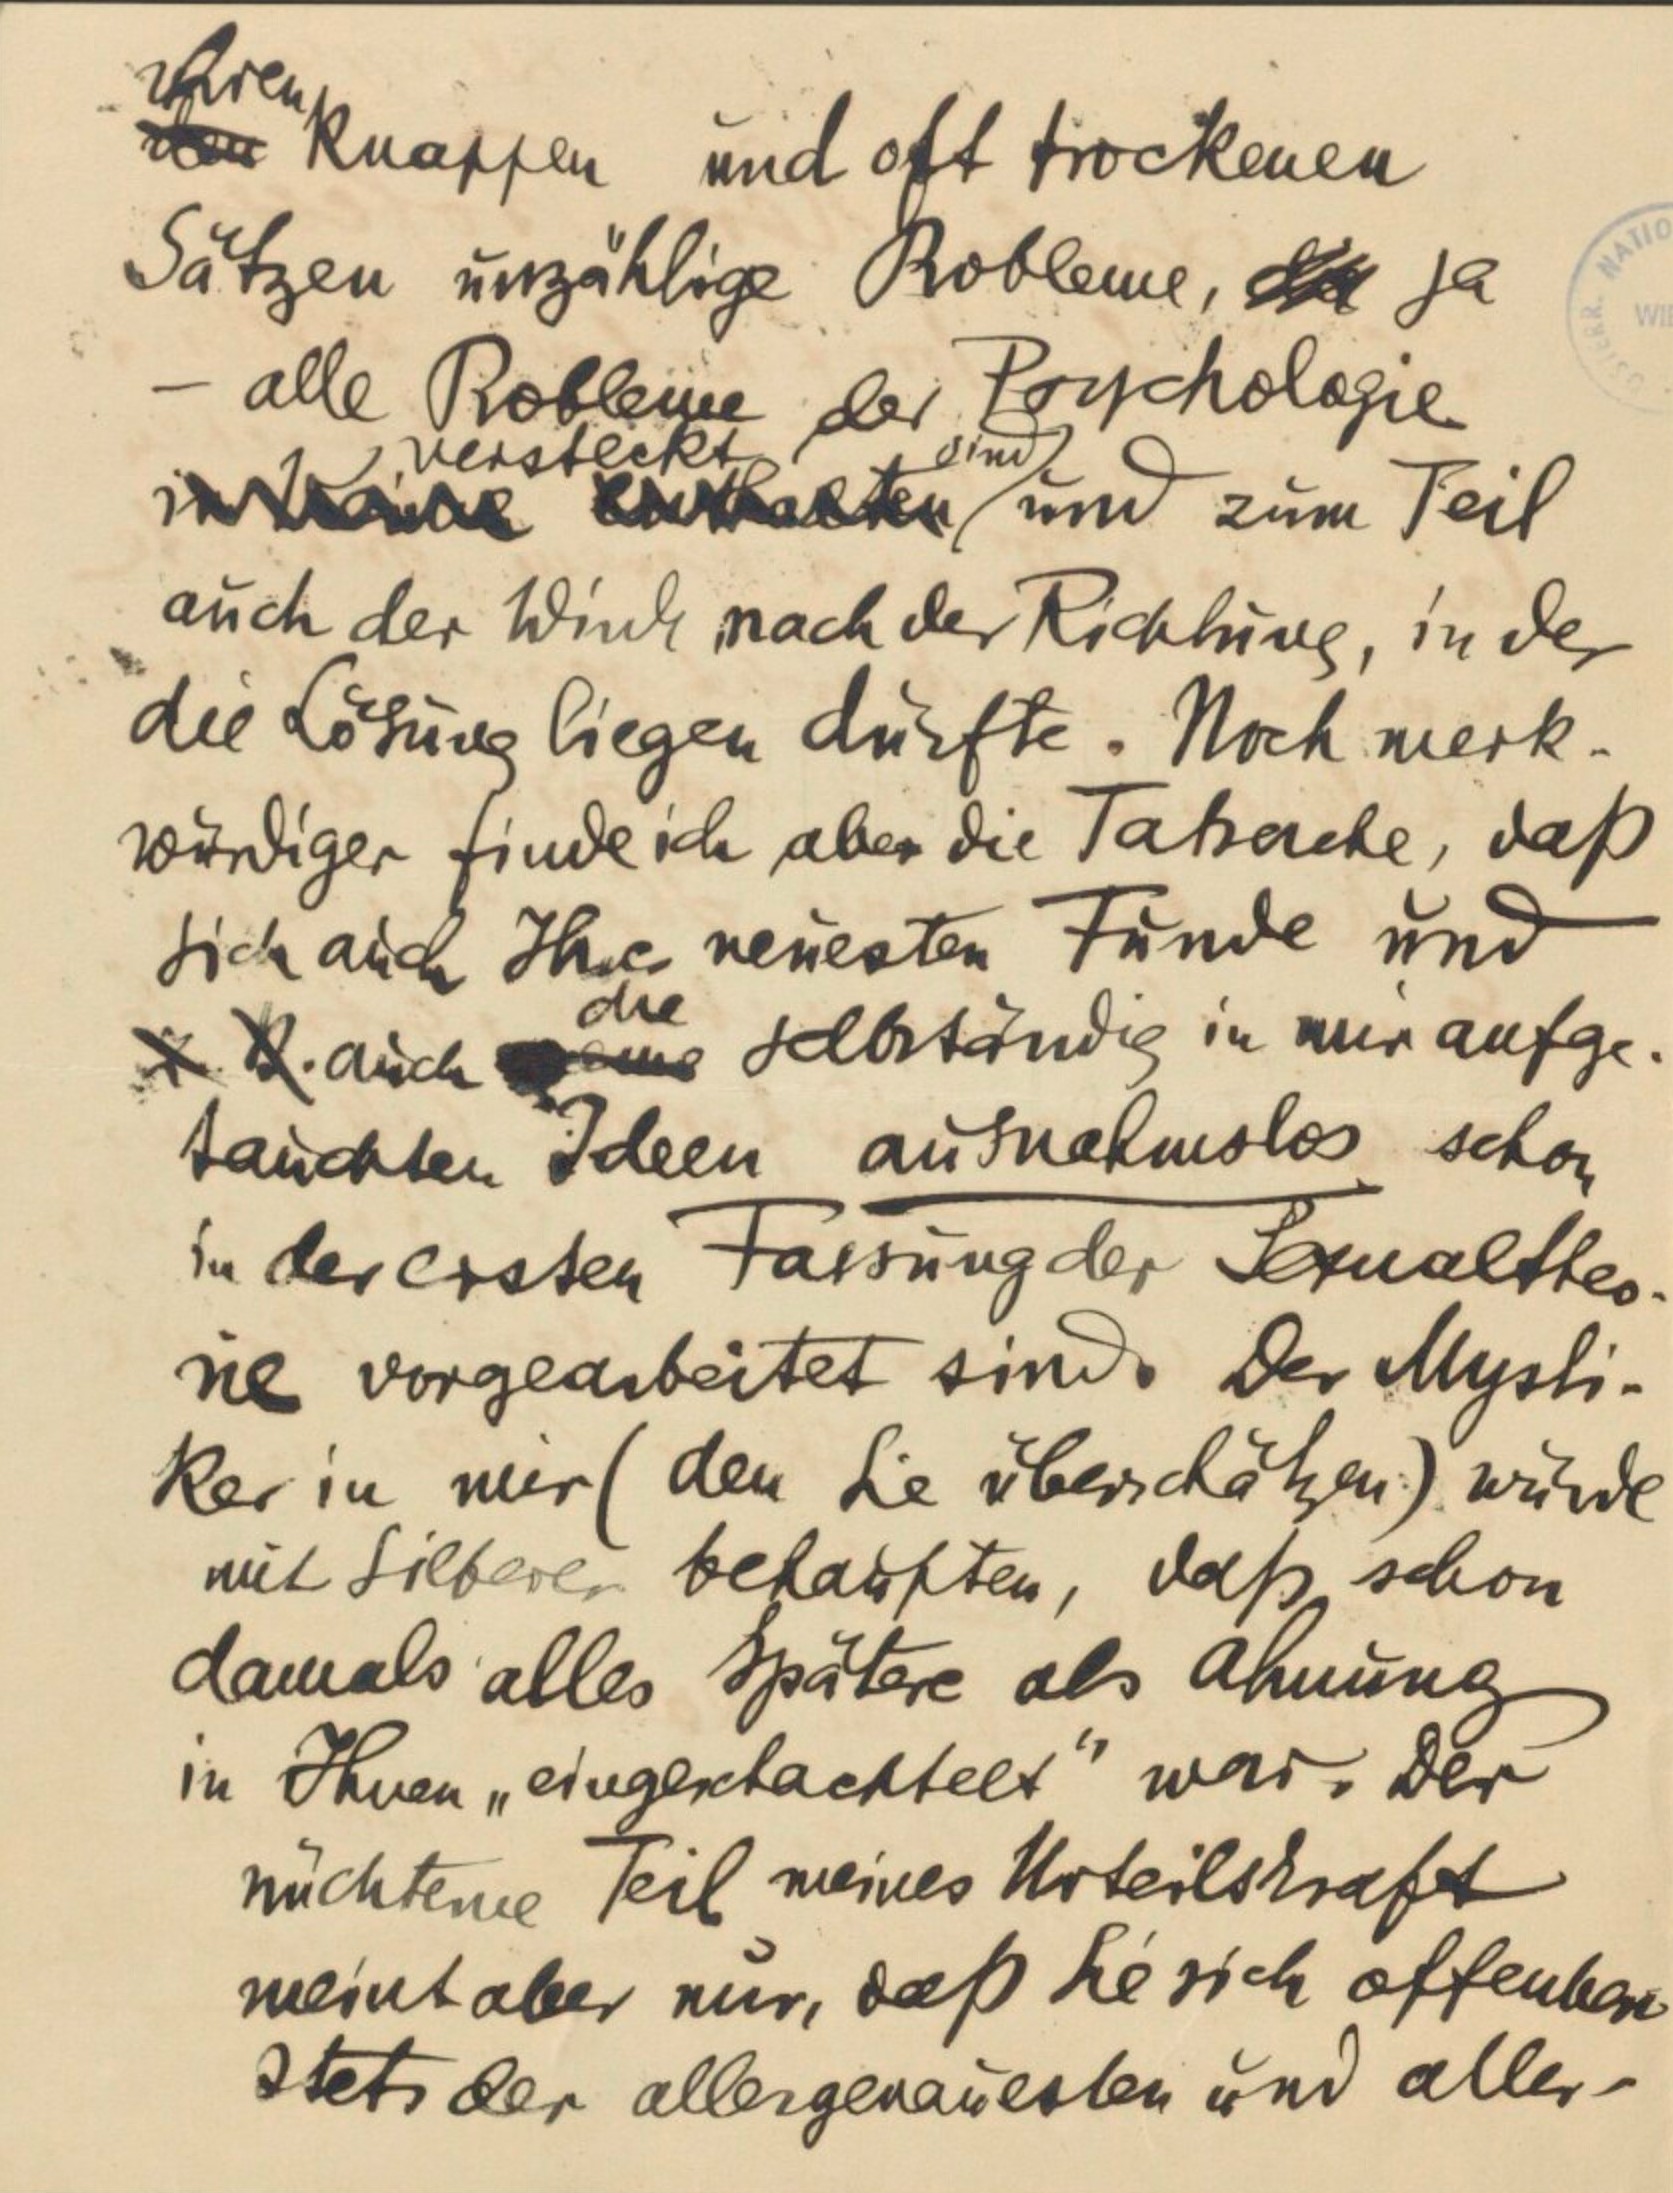 ihren
den knappen und oft trockenen
Sätzen unzählige Probleme, ja
– alle Probleme der Psychologie
versteckt sind
enthalten und zum Teil
auch der Wink nach der Richtung, in der
die Lösung liegen dürfte. Noch merk-
würdiger finde ich aber die Tatsache, daß
sich auch Ihre neuesten Funde und
die
z. B. auch meine selbständig in mir aufge-
tauchten Ideen ausnahmslos schon
in der ersten Fassung der Sexualtheo-
rie vorgearbeitet sind. Der Mysti-
ker in mir (den Sie überschätzen) würde
mit Silberer behaupten, daß schon
damals alles Spätere als Ahnung
in Ihnen „eingeschachtelt" war. Der
nüchterne Teil meines Urteilskraft
meint aber nur, daß Sie sich offenbar
stets der allergenauesten und aller-
ÖSTERR. NATIO
WIE